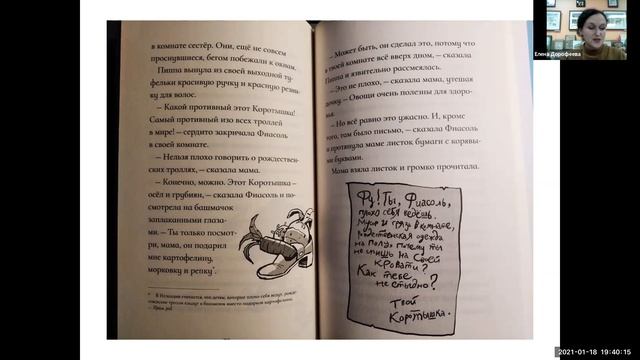 в комнате сестёр. Они, ещё не совсем
проснувшиеся, бегом побежали к окнам.
Пиппа вынула из своей выходной ту-
фельки красную ручку и красную резин-
ку для волос.
– Какой противный этот Коротышка!
Самый противный изо всех троллей
в мире! – сердито закричала Фиасоль
в своей комнате.
– Нельзя плохо говорить о рождествен-
ских троллях, – сказала мама.
– Конечно, можно. Этот Коротышка –
осёл и грубиян, – сказала Фиасоль и по-
смотрела на башмачок
заплаканными глаза-
ми. – Ты только посмот-
ри, мама, он подарил
мне картофелину,
морковку и репку*.
* В Исландии считается, что детям, которые плохо себя ведут, рожде-
ственские тролли кладут в башмачок вместо подарков картофелину. –
Прим. ред.
– Может быть, он сделал это, потому что
в твоей комнате всё вверх дном, – сказала
Пиппа и язвительно рассмеялась.
– Это не плохо, – сказала мама, утешая
дочку. – Овощи очень полезны для здоро-
вья.
– Но всё равно это ужасно. И, кроме
того, там было письмо, – сказала Фиасоль
и протянула маме листок бумаги с корявы-
ми буквами.
Мама взяла листок и громко прочитала.
Фу! Ты, Фиасоль,
плохо себя ведёшь.
Мусор и грязь в комнате,
рождественская одежда
на полу, почему ты
не спишь на своей
кровати?
Как тебе
не стыдно?
Твой
Коротышка.
Елена Дорофеева
2021-01-18 19:40:15